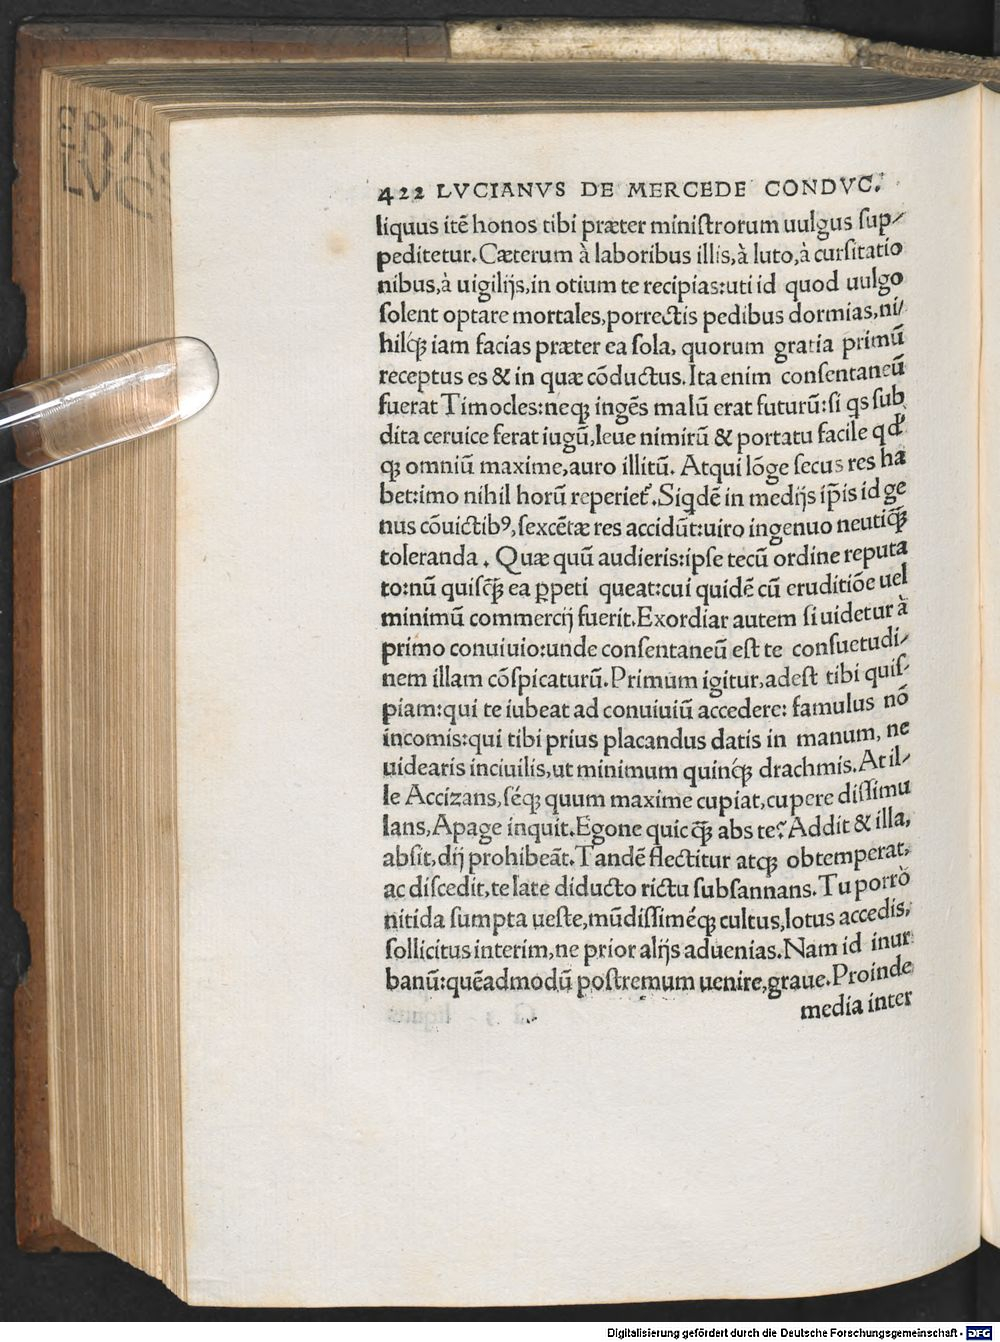 ERAS
LVC
422 LVCIANVS DE MERCEDE CONDVC.
liquus itē honos tibi præter miniſtrorum uulgus ſup-
peditetur. Cæterum à laboribus illis, à luto, à curſitatio
nibus, à uigilijs, in otium te recipias: uti id quod uulgo
ſolent optare mortales, porrectis pedibus dormias, ni-
hilq́ꝫ iam facias præter ea ſola, quorum gratia primū
receptus es & in quæ cōductus. Ita enim conſentaneū
fuerat Timocles: neqꝫ ingēs malū erat futurū: ſi qs ſub
dita ceruice ferat iugū, leue nimirū & portatu facile qd'
qꝫ omniū maxime, auro illitū. Atqui lōge ſecus res ha
bet: imo nihil horū reperiet᷑. Siqdē in medijs ip̄is id ge
nus cōuictibꝰ, ſexcētæ res accidūt: uiro ingenuo neutiq̄ꝫ
toleranda. Quæ quū audieris: ipſe tecū ordine reputa
to: nū quiſq̄ꝫ ea ꝑpeti queat: cui quidē cū eruditiōe uel
minimū commercij fuerit. Exordiar autem ſi uidetur à
primo conuiuio: unde conſentaneū eſt te conſuetudi-
nem illam cōſpicaturū. Primum igitur, adeſt tibi quiſ-
piam: qui te iubeat ad conuiuiū accedere: famulus nō
incomis: qui tibi prius placandus datis in manum, ne
uidearis inciuilis, ut minimum quinq́ꝫ drachmis. At il-
le Accizans, ſéqꝫ quum maxime cupiat, cupere diſſimu
lans, Apage inquit. Egone quicq̄ꝫ abs te? Addit & illa,
abſit, dij prohibeāt. Tandē flectitur atqꝫ obtemperat,
ac diſcedit, te late diducto rictu ſubſannans. Tu porrò
nitida ſumpta ueſte, mūdiſſiméqꝫ cultus, lotus accedis,
ſollicitus interim, ne prior alijs aduenias. Nam id inur
banū: quēadmodū poſtremum uenire, graue. Proinde
media inter
Digitalisierung gefördert durch die Deutsche Forschungsgemeinschaft - DFG